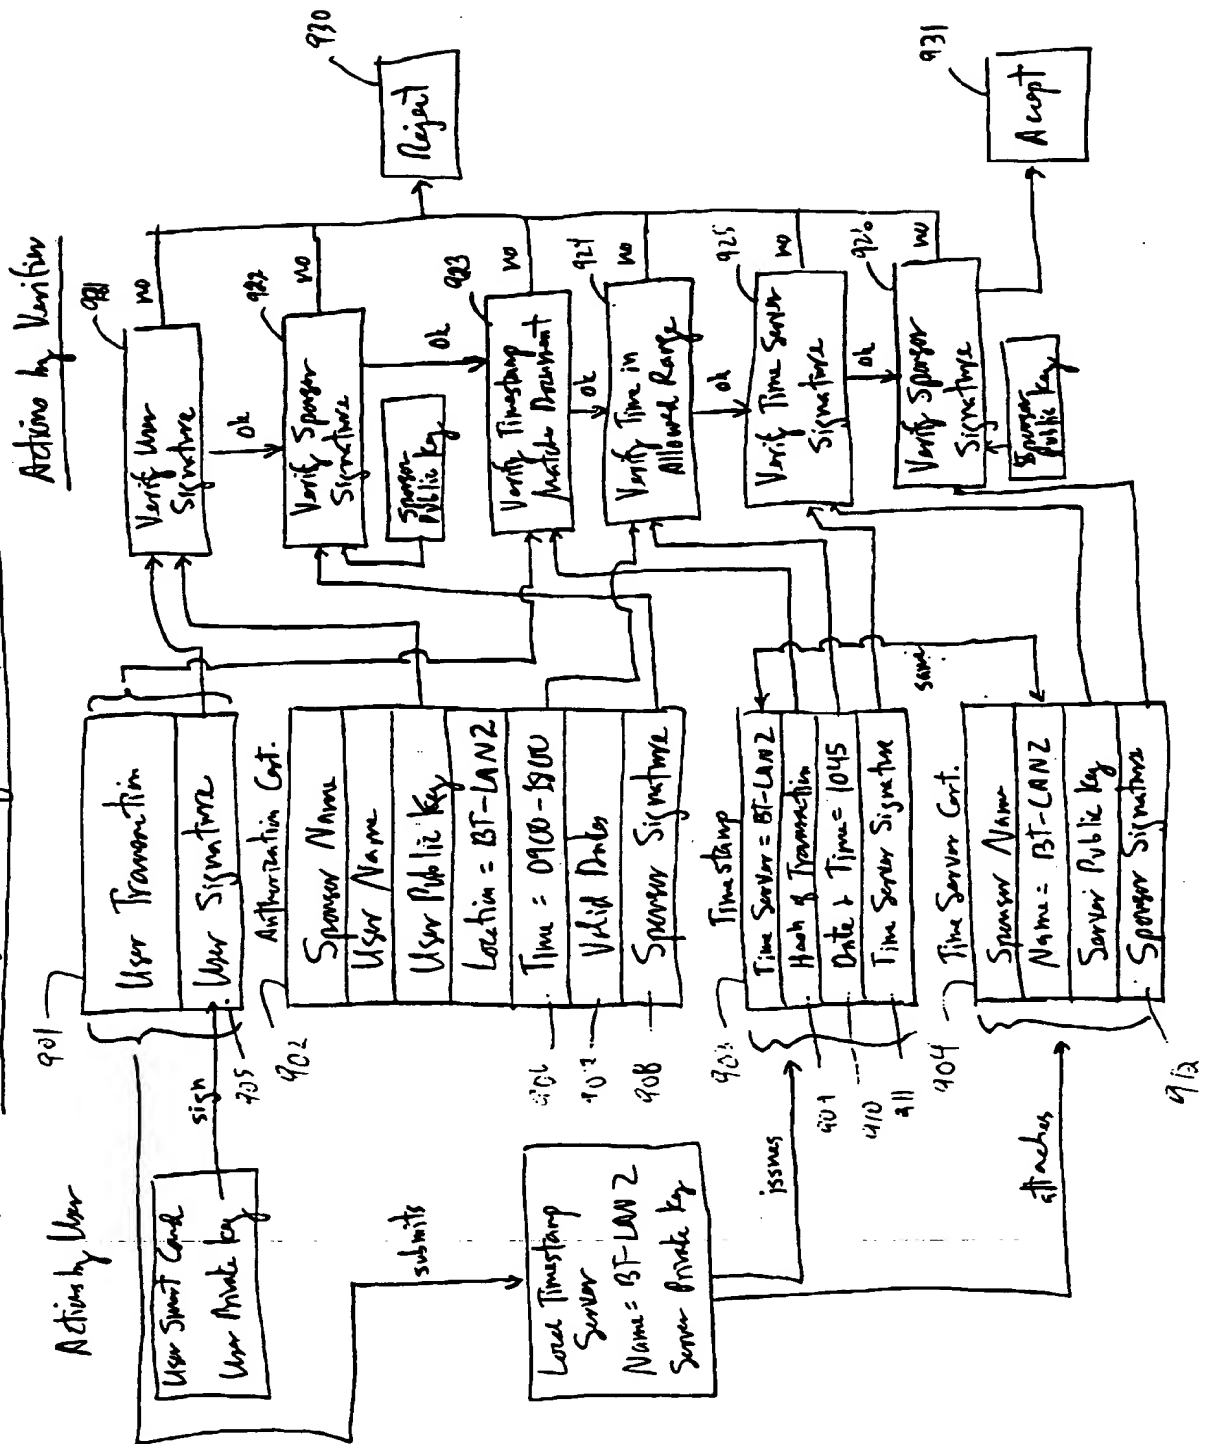 Actions by User
User Smart Card
User Private Key
sign
submits
Local Timestamp
Server
Name = BT-LAN2
Server Private Key
issues
attaches
901
User Transaction
User Signature
905
902
Authorization Cert.
Sponsor Name
User Name
User Public Key
Location = BT-LAN2
Time = 0900-1800
Valid Dates
Sponsor Signature
906
907
908
903
Timestamp
Time Server = BT-LAN2
Hash of Transaction
Date & Time = 1045
Time Server Signature
909
910
911
same
904
Time Server Cert.
Sponsor Name
Name = BT-LAN2
Server Public Key
Sponsor Signature
912
Actions by Verifier
921
Verify User
Signature
no
Ok
922
Verify Sponsor
Signature
no
Sponsor
Public Key
Ok
923
Verify Timestamp
Matches Document
no
Ok
924
Verify Time in
Allowed Range
no
Ok
925
Verify Time Server
Signature
no
Ok
926
Verify Sponsor
Signature
no
Sponsor
Public Key
930
Reject
931
Accept